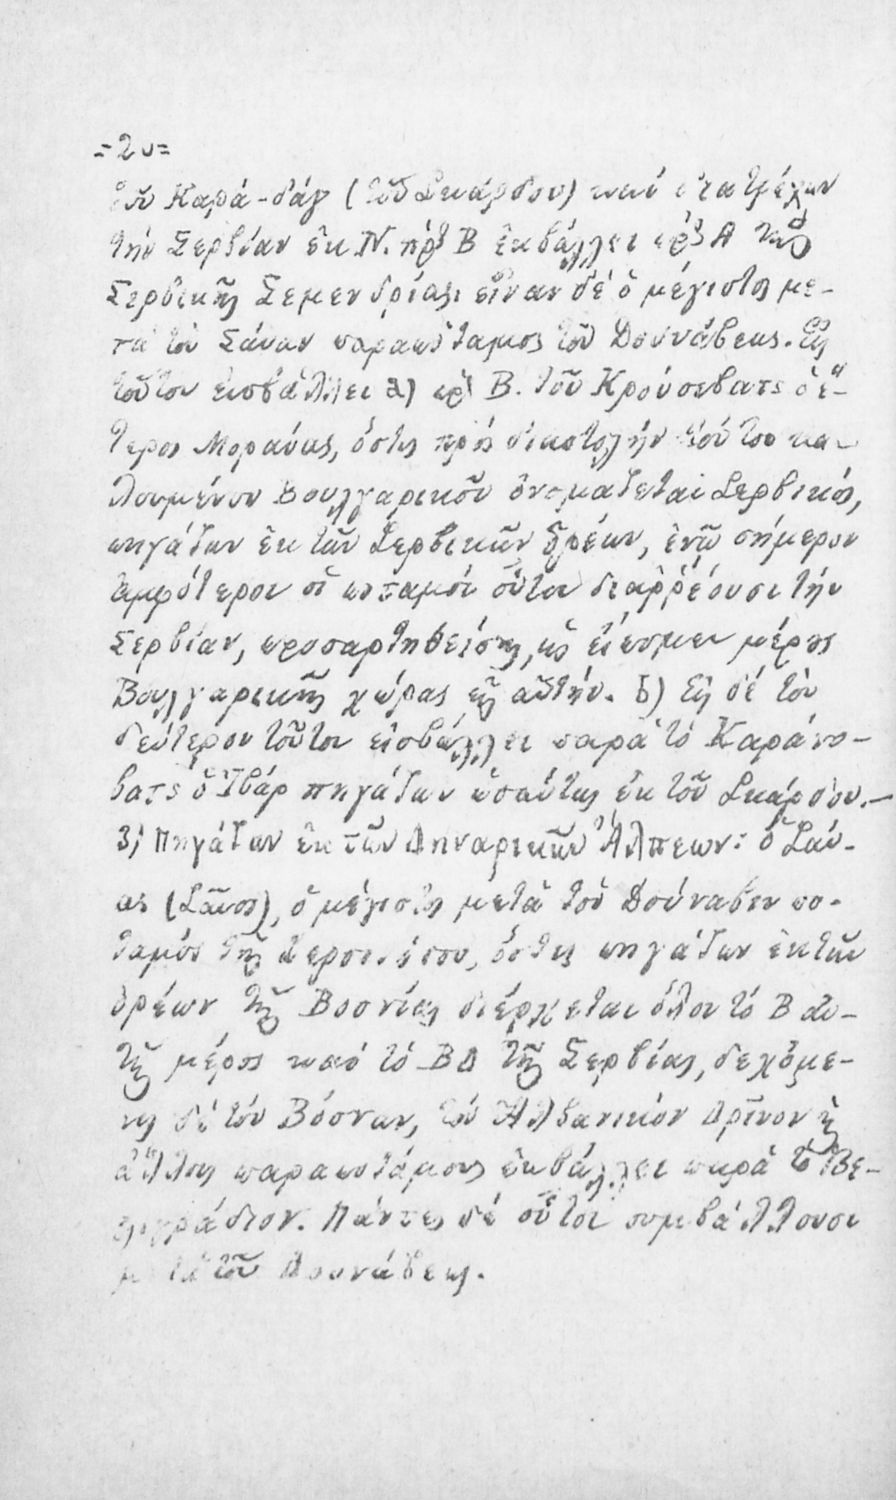 =20=
τοῦ Καρά-δάγ (τοῦ Σκάρδου) καί διατρέχων
τήν Σερβίαν ἐκ Ν. πρὸς Β ἐκβάλλει πρὸς Α τῆς
Σερβικῆς Σεμενδρίας· εἶναι δέ ὁ μέγιστος με-
τά τόν Σάυαν παραπόταμος τοῦ Δουνάβεως. Εἰς
τοῦτον εἰσβάλλει α) πρὸς Β. τοῦ Κρούσεβατς ὁ ἕ-
τερος Μοραύας, ὅστις πρός διαστολήν τούτου κα-
λουμένου Βουλγαρικοῦ ὀνομάζεται Σερβικός,
πηγάζων ἐκ τῶν Σερβικῶν ὀρέων, ἐνῷ σήμερον
ἀμφότεροι οἱ ποταμοί οὗτοι διαῤῥέουσι τήν
Σερβίαν, προσαρτηθείσης, ὡς εἴπομεν μέρος
Βουλγαρικῆς χώρας εἰς αὐτήν. β) Εἰς δέ τόν
δεύτερον τοῦτον εἰσβάλλει παρά τό Καράνο-
βατς ὁ Ἴβάρ πηγάζων ὡσαύτως ἐκ τοῦ Σκάρδου.—
3) Πηγάζων ἐκ τῶν Δηναρικῶν Ἄλπεων: ὁ Σαύ-
ας (Σάυος), ὁ μέγιστος μετά τόν Δούναβιν πο-
ταμός τῆς Χερσονήσου, ὅστις πηγάζων ἐκ τῶν
ὀρέων τῆς Βοσνίας διέρχεται ὅλον τό Β αὐ-
τῆς μέρος καί τό ΒΔ τῆς Σερβίας, δεχόμε-
νος δέ τόν Βόσναν, τόν Ἀλβανικόν Δρῖνον ϗ
ἄλλους παραποτάμους ἐκβάλλει παρά τό Βε-
λιγράδιον. Πάντες δέ οὗτοι συμβάλλουσι
μετά τοῦ Δουνάβεως.